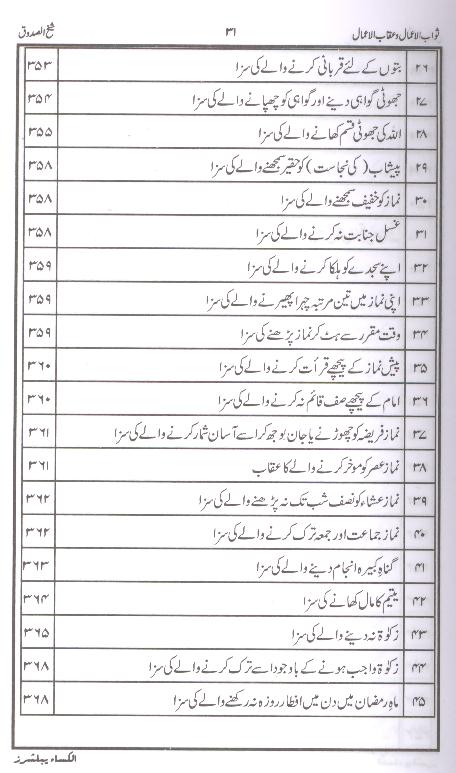 ثواب الاعمال و عقاب الاعمال ۳۱ شیخ الصدوق
۲۶ بتوں کے لئے قربانی کرنے والے کی سزا ۳۵۳
۲۷ جھوٹی گواہی دینے اور گواہی کو چھپانے والے کی سزا ۳۵۴
۲۸ اللہ کی جھوٹی قسم کھانے والے کی سزا ۳۵۵
۲۹ پیشاب (کی نجاست) کو حقیر سمجھنے والے کی سزا ۳۵۸
۳۰ نماز کو خفیف سمجھنے والے کی سزا ۳۵۸
۳۱ غسل جنابت نہ کرنے والے کی سزا ۳۵۸
۳۲ اپنے سجدے کو ہلکا کرنے والے کی سزا ۳۵۹
۳۳ اپنی نماز میں تین مرتبہ چہرا پھیرنے والے کی سزا ۳۵۹
۳۴ وقت مقرر سے ہٹ کر نماز پڑھنے کی سزا ۳۵۹
۳۵ پیش نماز کے پیچھے قرأت کرنے والے کی سزا ۳۶۰
۳۶ امام کے پیچھے صف قائم نہ کرنے والے کی سزا ۳۶۰
۳۷ نماز فریضہ کو چھوڑنے یا جان بوجھ کر اسے آسان شمار کرنے والے کی سزا ۳۶۱
۳۸ نماز عصر کو موخر کرنے والے کا عقاب ۳۶۱
۳۹ نماز عشاء کو نصف شب تک نہ پڑھنے والے کی سزا ۳۶۲
۴۰ نماز جماعت اور جمعہ ترک کرنے والے کی سزا ۳۶۲
۴۱ گناہ کبیرہ انجام دینے والے کی سزا ۳۶۳
۴۲ یتیم کا مال کھانے کی سزا ۳۶۴
۴۳ زکوٰۃ نہ دینے والے کی سزا ۳۶۵
۴۴ زکوٰۃ واجب ہونے کے باوجود اسے ترک کرنے والے کی سزا ۳۶۸
۴۵ ماہ رمضان میں دن میں افطار روزہ نہ رکھنے والے کی سزا ۳۶۸
الکساء پبلشرز